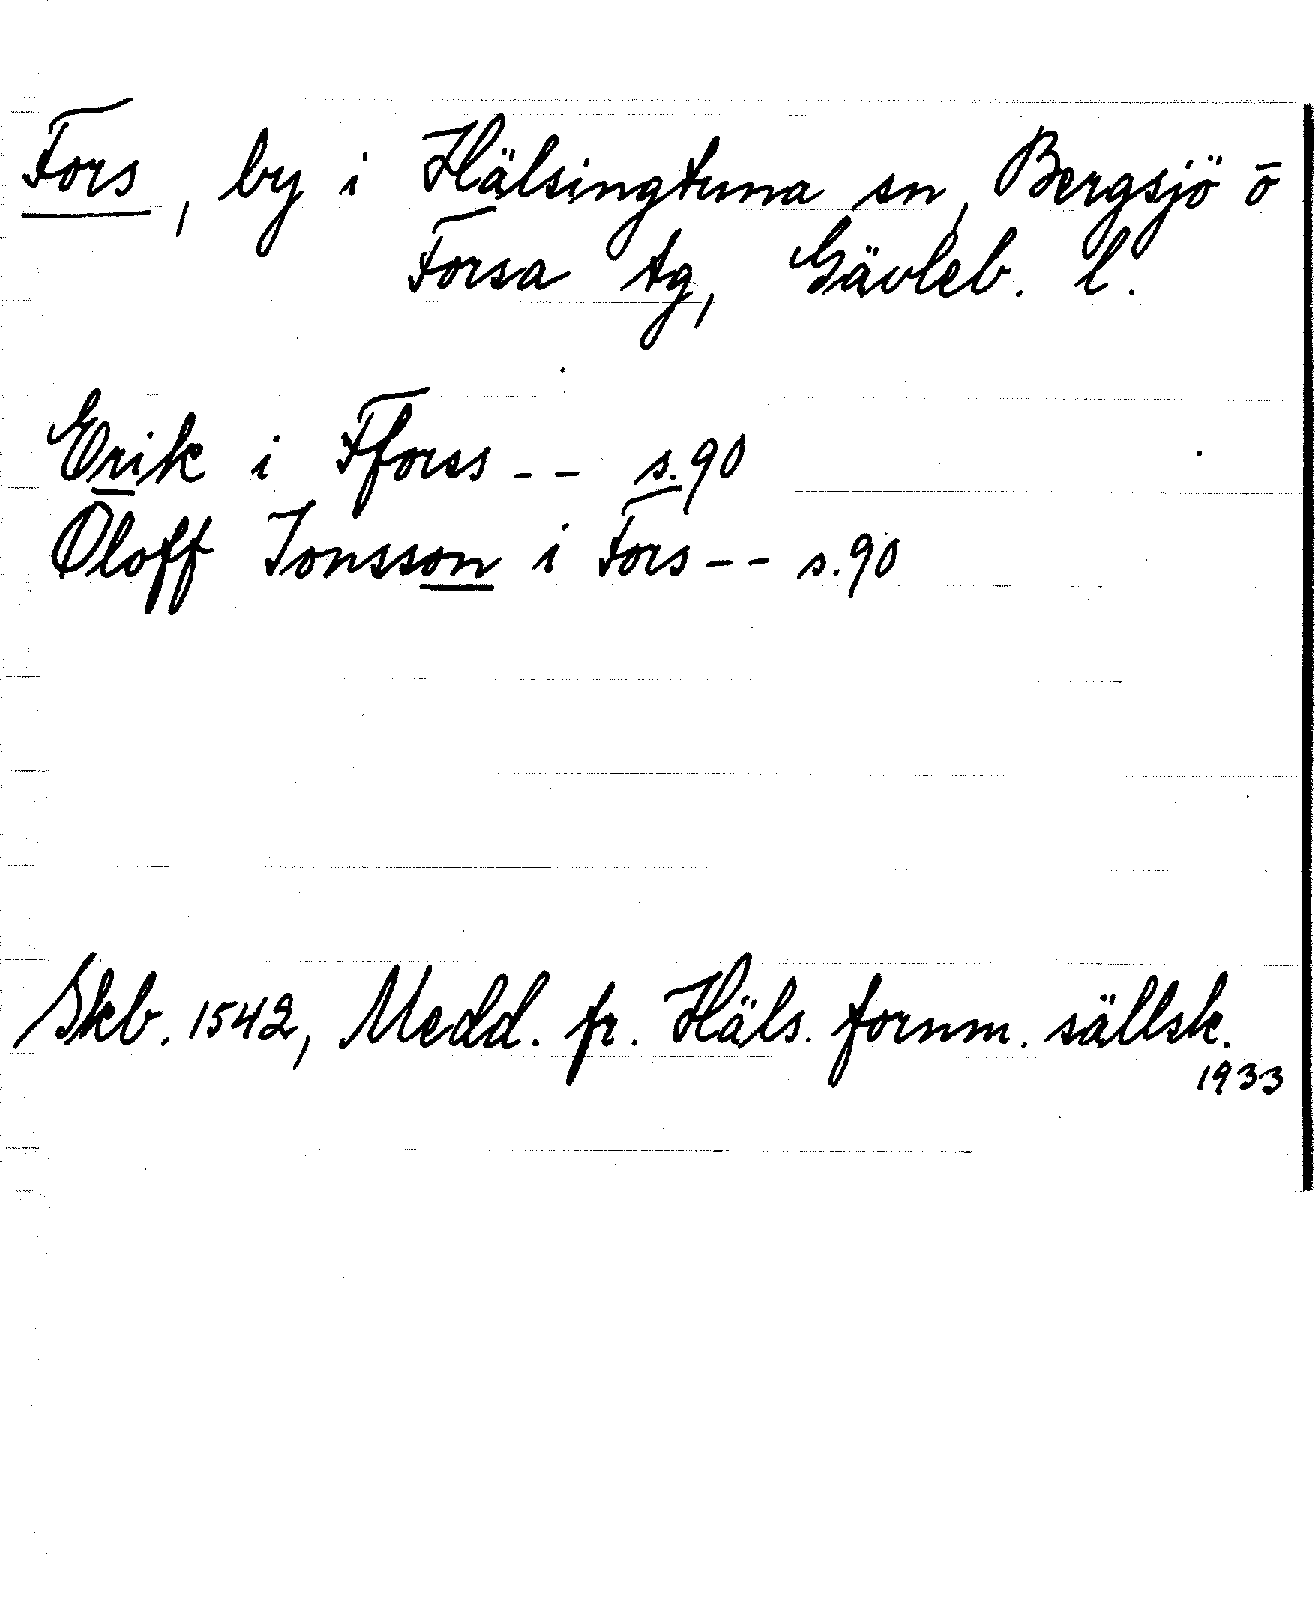 Fors, by i Hälsingtuna sn, Bergsjö o
Forsa tg, Gävleb. l.
Erik i Fforss -- s.90
Oloff Jonsson i Fors -- s.90
Skb. 1542, Medd. fr. Häls. fornm. sällsk.
1933